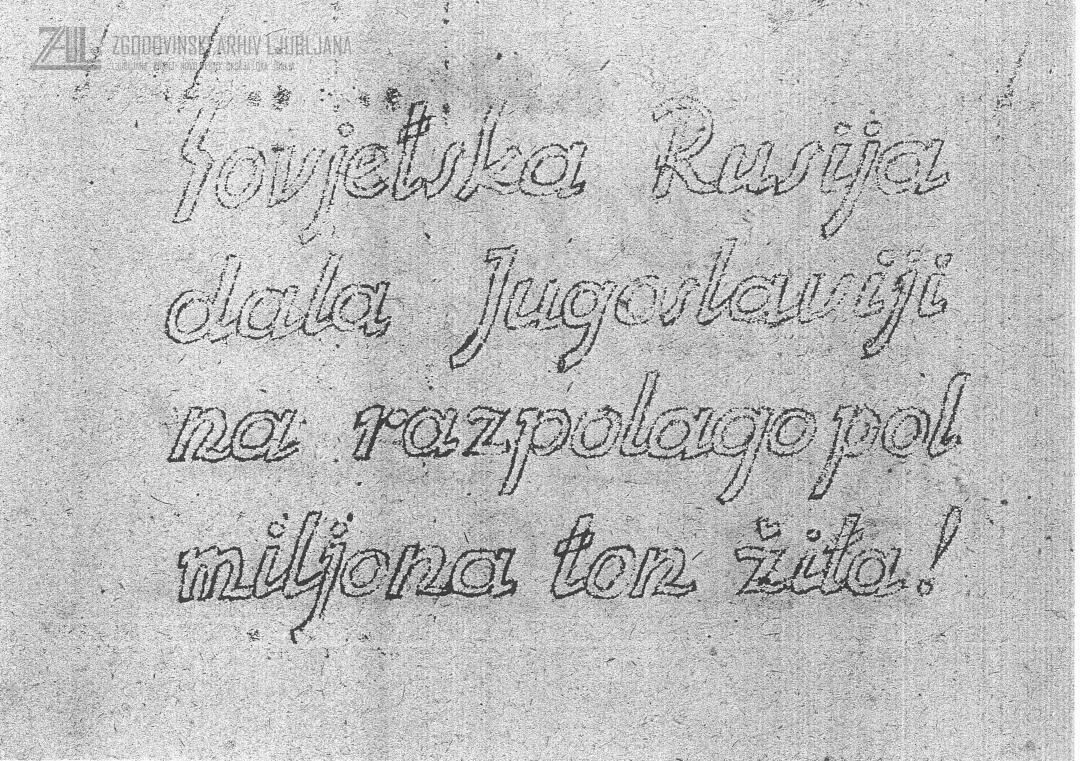 ZGODOVINSKI ARHIV LJUBLJANA
Sovjetska Rusija
dala Jugoslaviji
na razpolago pol
miljona ton žita!